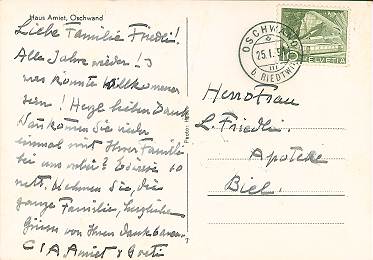 Haus Amiet, Oschwand
Liebe Familie Friedli!
Alle Jahre wieder! Is
was könnte willkommener
sein! Herzl. lieben Dank
Wann kommen Sie wieder
einmal mit Ihrer Familie
bei uns vorbei?
nett. Nehmen Sie, die
ganze Familie, herzliche
Grüsse von Ihren dankbaren
C & A Amiet &
OSCHWAND
25.I.5
b. RIEDTWIL
HELVETIA
10
Herr & Frau
L. Friedli
Apoteke
Biel.